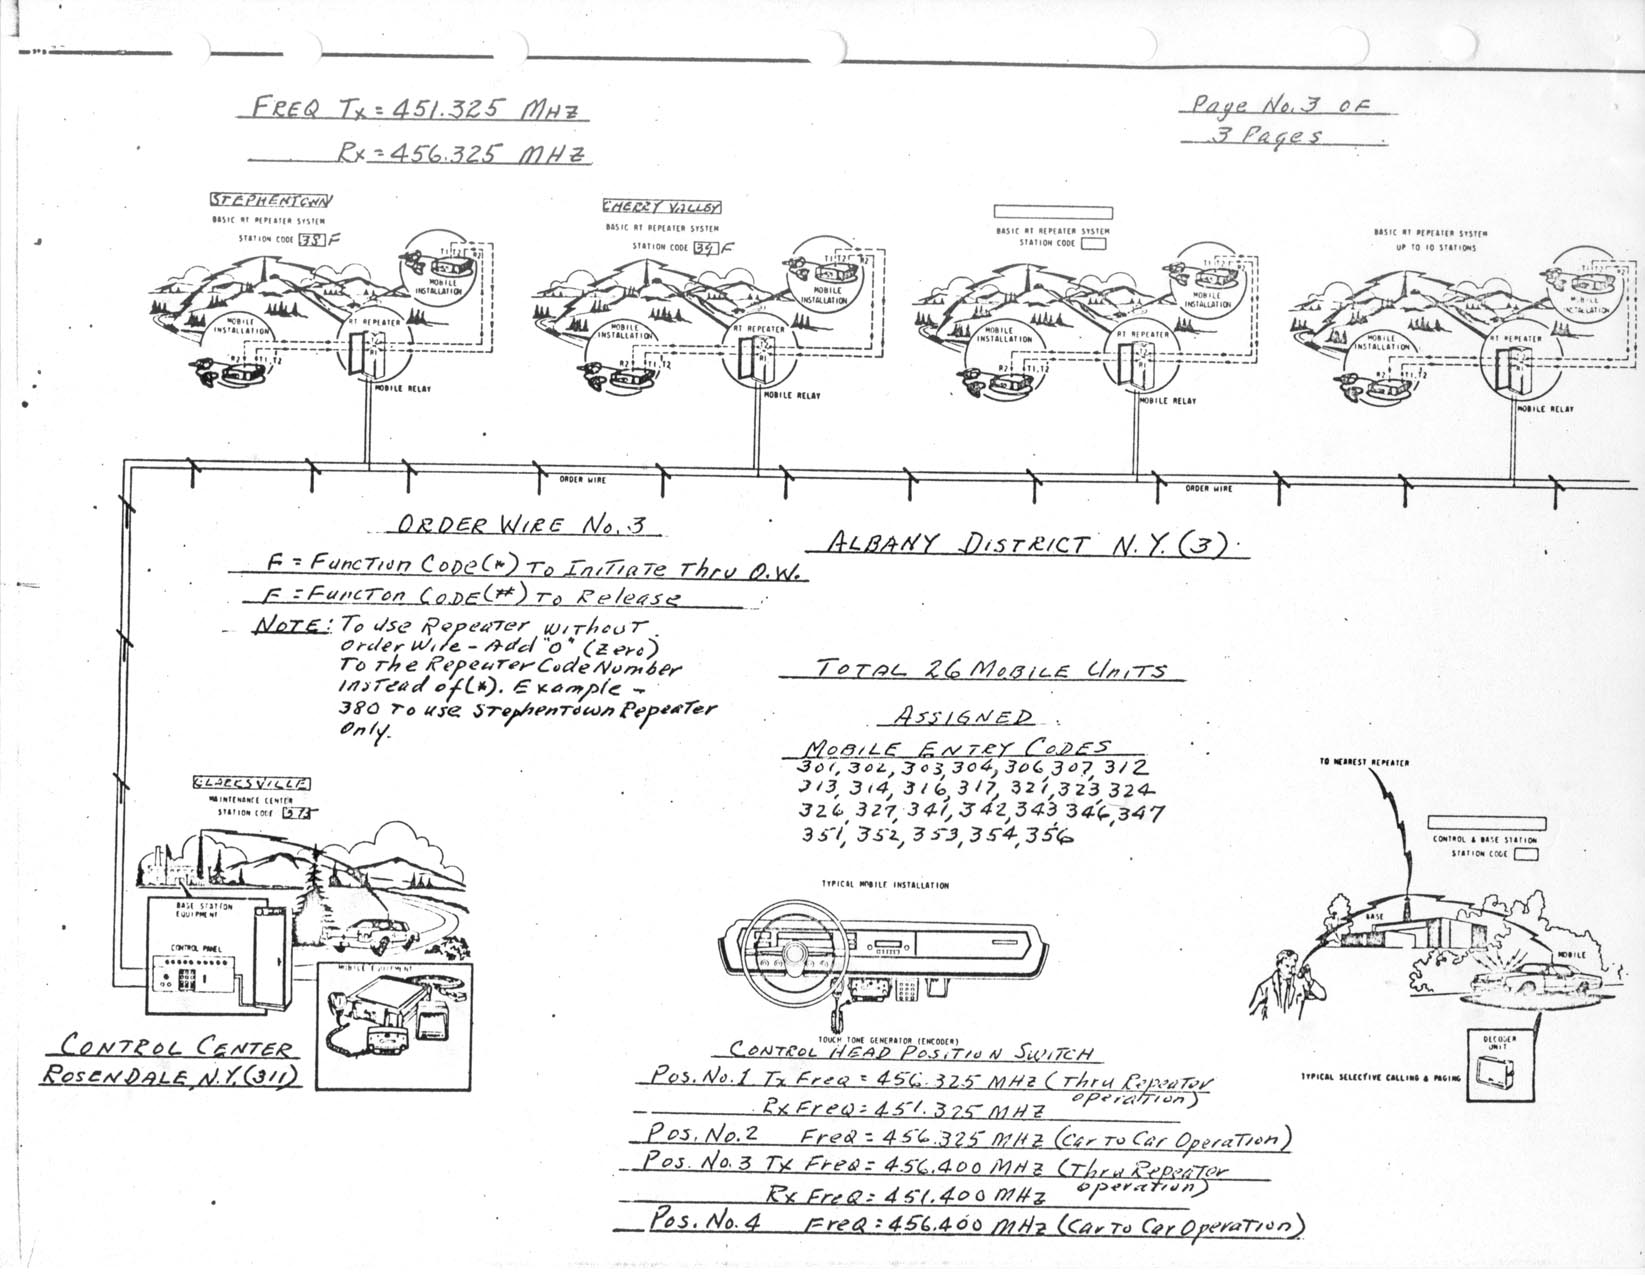 FREQ Tx = 451.325 MHZ
Rx = 456.325 MHZ
Page No. 3 OF
3 Pages
STEPHENTOWN
BASIC RT REPEATER SYSTEM
STATION CODE 38 F
T1 T2 R2
MOBILE INSTALLATION
MOBILE INSTALLATION
R2 T1, T2
RT REPEATER
T2
R1
MOBILE RELAY
CHERRY VALLEY
BASIC RT REPEATER SYSTEM
STATION CODE 39 F
T1 T2 R2
MOBILE INSTALLATION
MOBILE INSTALLATION
R2 T1, T2
RT REPEATER
T2
R1
MOBILE RELAY
BASIC RT REPEATER SYSTEM
STATION CODE
T1 T2 R2
MOBILE INSTALLATION
MOBILE INSTALLATION
R2 T1, T2
RT REPEATER
T2
R1
MOBILE RELAY
BASIC RT REPEATER SYSTEM
UP TO 10 STATIONS
T1 T2 R2
MOBILE INSTALLATION
MOBILE INSTALLATION
R2 T1, T2
RT REPEATER
T2
R1
MOBILE RELAY
ORDER WIRE
ORDER WIRE
ORDER WIRE No. 3
F = Function Code (*) To Initiate Thru O.W.
F = Functon CODE (#) To Release
NOTE: To Use Repeater without
Order Wire - Add "O" (Zero)
To The Repeater Code Number
instead of (*). Example -
380 To use Stephentown Repeater
Only.
ALBANY DISTRICT N.Y. (3)
TOTAL 26 MOBILE UNITS
ASSIGNED
MOBILE ENTRY CODES
301, 302, 303, 304, 306, 307, 312
313, 314, 316, 317, 321, 323, 324
326, 327, 341, 342, 343, 346, 347
351, 352, 353, 354, 356
CLARKSVILLE
MAINTENANCE CENTER
STATION CODE
BASE STATION
EQUIPMENT
CONTROL PANEL
MOBILE EQUIPMENT
CONTROL CENTER
ROSENDALE, N.Y. (311)
TYPICAL MOBILE INSTALLATION
TOUCH TONE GENERATOR (ENCODER)
TO NEAREST REPEATER
CONTROL & BASE STATION
STATION CODE
BASE
MOBILE
DECODER
UNIT
TYPICAL SELECTIVE CALLING & PAGING
CONTROL HEAD POSITION SWITCH
Pos. No. 1 Tx Freq = 456.325 MHZ (Thru Repeater
operation)
Rx Freq = 451.325 MHZ
Pos. No. 2 Freq = 456.325 MHZ (Car To Car Operation)
Pos. No. 3 Tx Freq = 456.400 MHZ (Thru Repeater
operation)
Rx Freq = 451.400 MHZ
Pos. No. 4 Freq = 456.400 MHZ (Car To Car Operation)